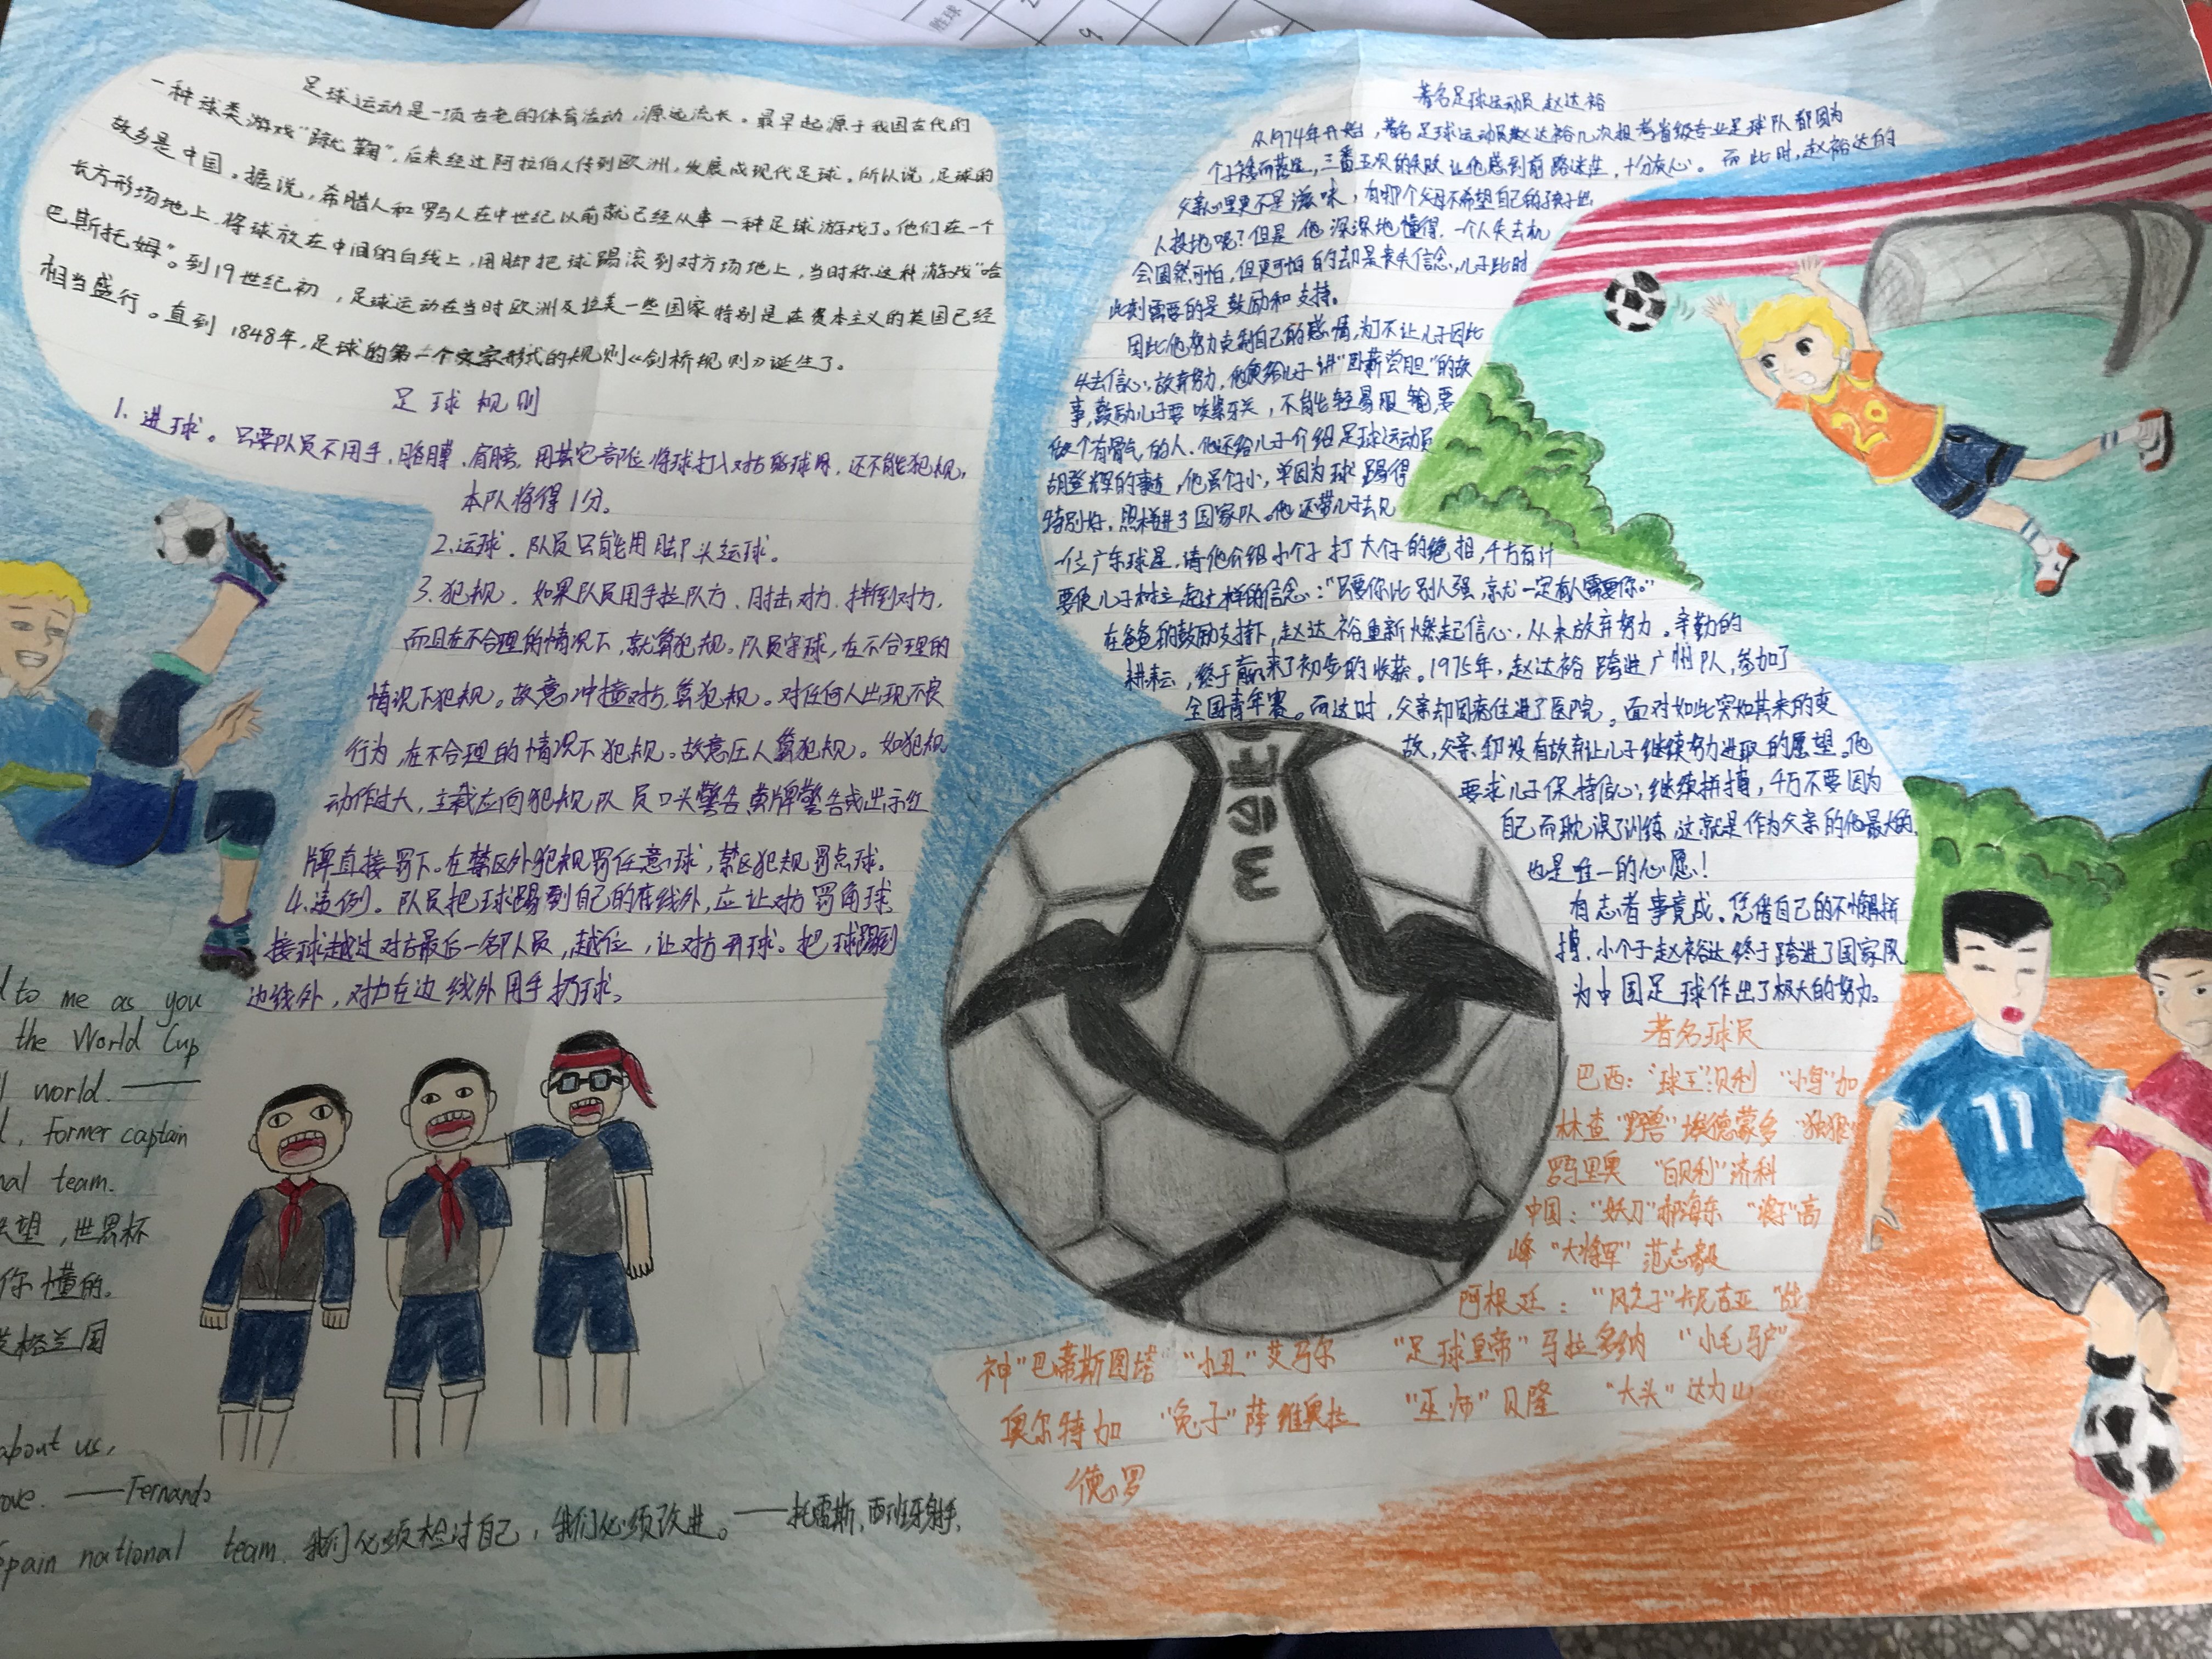 胜球
9
足球运动是一项古老的体育活动,源远流长。最早起源于我国古代的
一种球类游戏"蹴鞠",后来经过阿拉伯人传到欧洲,发展成现代足球。所以说,足球的
故乡是中国。据说,希腊人和罗马人在中世纪以前就已经从事一种足球游戏了。他们在一个
长方形场地上,将球放在中间的白线上,用脚把球踢滚到对方场地上,当时称这种游戏"哈
巴斯托姆"。到19世纪初,足球运动在当时欧洲及拉美一些国家特别是在资本主义的英国已经
相当盛行。直到1848年,足球的第一个文字形式的规则《剑桥规则》诞生了。
足球规则
1、进球。只要队员不用手、胳膊、肩膀,用其它部位将球打入对方球网,还不能犯规,
本队将得1分。
2、运球。队员只能用脚、头运球。
3、犯规。如果队员用手拉队方、肘击对方、拌倒对方,
而且在不合理的情况下,就算犯规。队员守球,在不合理的
情况下犯规。故意冲撞对方,算犯规。对任何人出现不良
行为,在不合理的情况下犯规。故意压人算犯规。如犯规
动作过大,主裁应向犯规队员口头警告黄牌警告或出示红
牌直接罚下。在禁区外犯规罚任意球,禁区犯规罚点球。
4、违例。队员把球踢到自己的底线外,应让对方罚角球,
接球越过对方最后一名队员,越位,让对方开球。把球踢到
边线外,对方在边线外用手扔球。
d to me as you
the World Cup
l world. ——
l, Former captain
nal team.
望,世界杯
你懂的。
英格兰国
about us,
ove. ——Fernando
Spain national team. 我们必须检讨自己,我们必须改进。——托雷斯,西班牙射手.
著名足球运动员 赵达裕
从1974年开始,著名足球运动员赵达裕几次报考省级专业足球队都因为
个子矮而落选,三番五次的失败让他感到前路迷茫,十分灰心。而此时,赵裕达的
父亲心里更不是滋味,有哪个父母不希望自己的孩子出
人投地呢?但是他深深地懂得,一个人失去机
会固然可怕,但更可怕的却是丧失信念,儿子此时
此刻需要的是鼓励和支持。
因此他努力克制自己的感情,为了不让儿子因此
失去信心,放弃努力,他便给儿子讲"卧薪尝胆"的故
事,鼓励儿子要咬紧牙关,不能轻易服输,要
做个有骨气的人。他还给儿子介绍足球运动员
胡登辉的事迹,他虽个小,单因为球踢得
特别好,照样进了国家队。他还带儿子去见
一位广东球星,请他介绍小个子打大仔的绝招,千方百计
要使儿子树立起这样的信念:"只要你比别人强,就一定有人需要你。"
在爸爸的鼓励支持下,赵达裕重新燃起信心,从未放弃努力。辛勤的
耕耘,终于赢来了初步的收获。1975年,赵达裕跨进广州队,参加了
全国青年赛。而这时,父亲却因病住进了医院。面对如此突如其来的变
故,父亲却没有放弃让儿子继续努力进取的愿望。他
要求儿子保持信心,继续拼搏,千万不要因为
自己而耽误了训练,这就是作为父亲的他最大的,
也是唯一的心愿!
有志者事竟成。凭借自己的不懈拼
搏,小个子赵裕达终于跨进了国家队
为中国足球作出了极大的努力。
著名球员
巴西:"球王"贝利 "小鸟"加
林查 "野兽"埃德蒙多 "独狼"
罗马里奥 "白贝利"济科
中国:"妖刀"郝海东 "浪子"高
峰 "大将军"范志毅
阿根廷:"风之子"卡尼吉亚 "战
神"巴蒂斯图塔 "小丑"艾马尔 "足球皇帝"马拉多纳 "小毛驴"
奥尔特加 "兔子"萨维奥拉 "巫师"贝隆 "大头"达力山
德罗
20
11